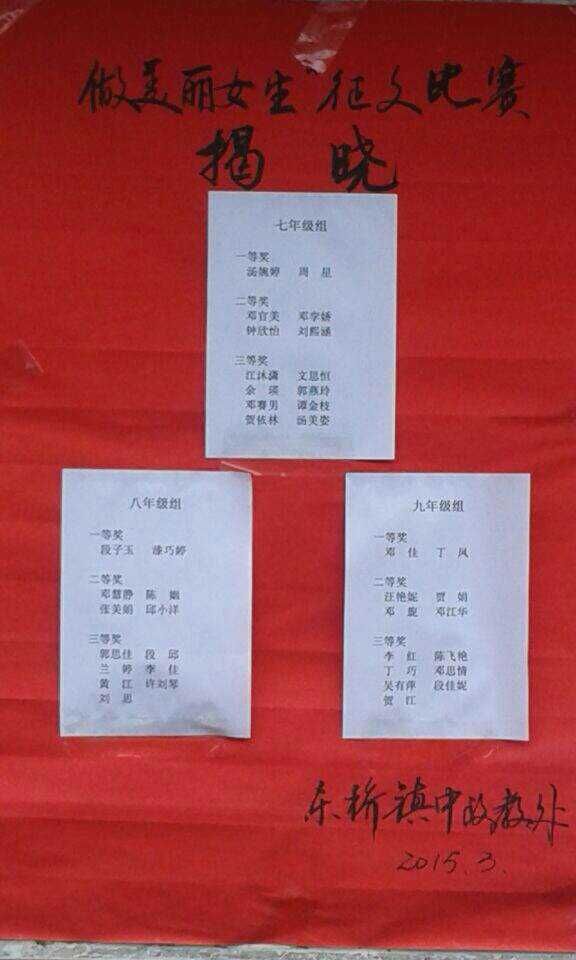 做美丽女生"征文比赛
揭 晓
七年级组
一等奖
汤婉婷 周 星
二等奖
邓官美 邓李娇
钟欣怡 刘熙涵
三等奖
江沐潇 文思恒
余 瑛 郭燕玲
邓赛男 谭金枝
贺依林 汤美姿
八年级组
一等奖
段子玉 漆巧婷
二等奖
邓慧静 陈 姻
张美娟 邱小洋
三等奖
郭思佳 段 邱
兰 婷 李 佳
黄 江 许刘琴
刘 思
九年级组
一等奖
邓 佳 丁 凤
二等奖
汪艳妮 贾 娟
邓 旎 邓江华
三等奖
李 红 陈飞艳
丁 巧 邓思情
吴有萍 段佳妮
贺 江
东桥镇中政教处
2015.3.